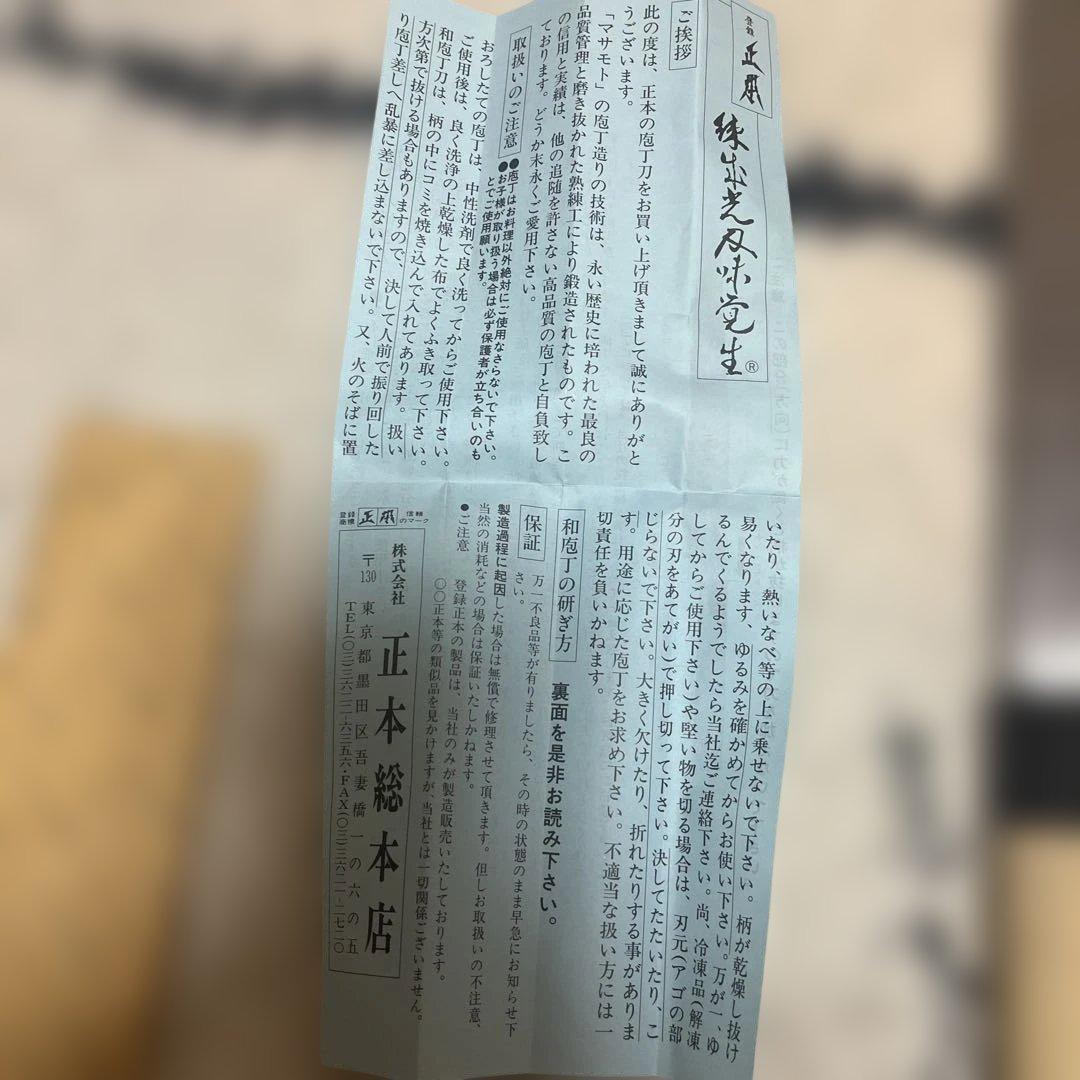 登録
正本
練出光刃味覚生®
ご挨拶
此の度は、正本の庖丁刀をお買い上げ頂きまして誠にありがと
うございます。
「マサモト」の庖丁造りの技術は、永い歴史に培われた最良の
品質管理と磨き抜かれた熟練工により鍛造されたものです。こ
の信用と実績は、他の追随を許さない高品質の庖丁と自負致し
ております。どうか末永くご愛用下さい。
取扱いのご注意
●庖丁はお料理以外絶対にご使用なさらないで下さい。
●お子様が取り扱う場合は必ず保護者が立ち合いのも
とでご使用願います。
おろしたての庖丁は、中性洗剤で良く洗ってからご使用下さい。
ご使用後は、良く洗浄の上乾燥した布でよくふき取って下さい。
和庖丁刀は、柄の中にコミを焼き込んで入れてあります。扱い
方次第で抜ける場合もありますので、決して人前で振り回した
り庖丁差しへ乱暴に差し込まないで下さい。又、火のそばに置
いたり、熱いなべ等の上に乗せないで下さい。柄が乾燥し抜け
易くなります、ゆるみを確かめてからお使い下さい。万が一、ゆ
るんでくるようでしたら当社迄ご連絡下さい。尚、冷凍品(解凍
してからご使用下さい)や堅い物を切る場合は、刃元(アゴの部
分の刃をあてがい)で押し切って下さい。決してたたいたり、こ
じらないで下さい。大きく欠けたり、折れたりする事がありま
す。用途に応じた庖丁をお求め下さい。不適当な扱い方には一
切責任を負いかねます。
和庖丁の研ぎ方
裏面を是非お読み下さい。
保証
万一不良品等が有りましたら、その時の状態のまま早急にお知らせ下
さい。
製造過程に起因した場合は無償で修理させて頂きます。但しお取扱いの不注意、
当然の消耗などの場合は保証いたしかねます。
●ご注意
登録正本の製品は、当社のみが製造販売いたしております。
〇〇正本等の類似品を見かけますが、当社とは一切関係ございません。
登録商標
正本
信頼のマーク
株式会社 正本総本店
〒130 東京都墨田区吾妻橋一の六の五
TEL(〇三)三六二二-六二五六・FAX(〇三)三六二一-二七二〇